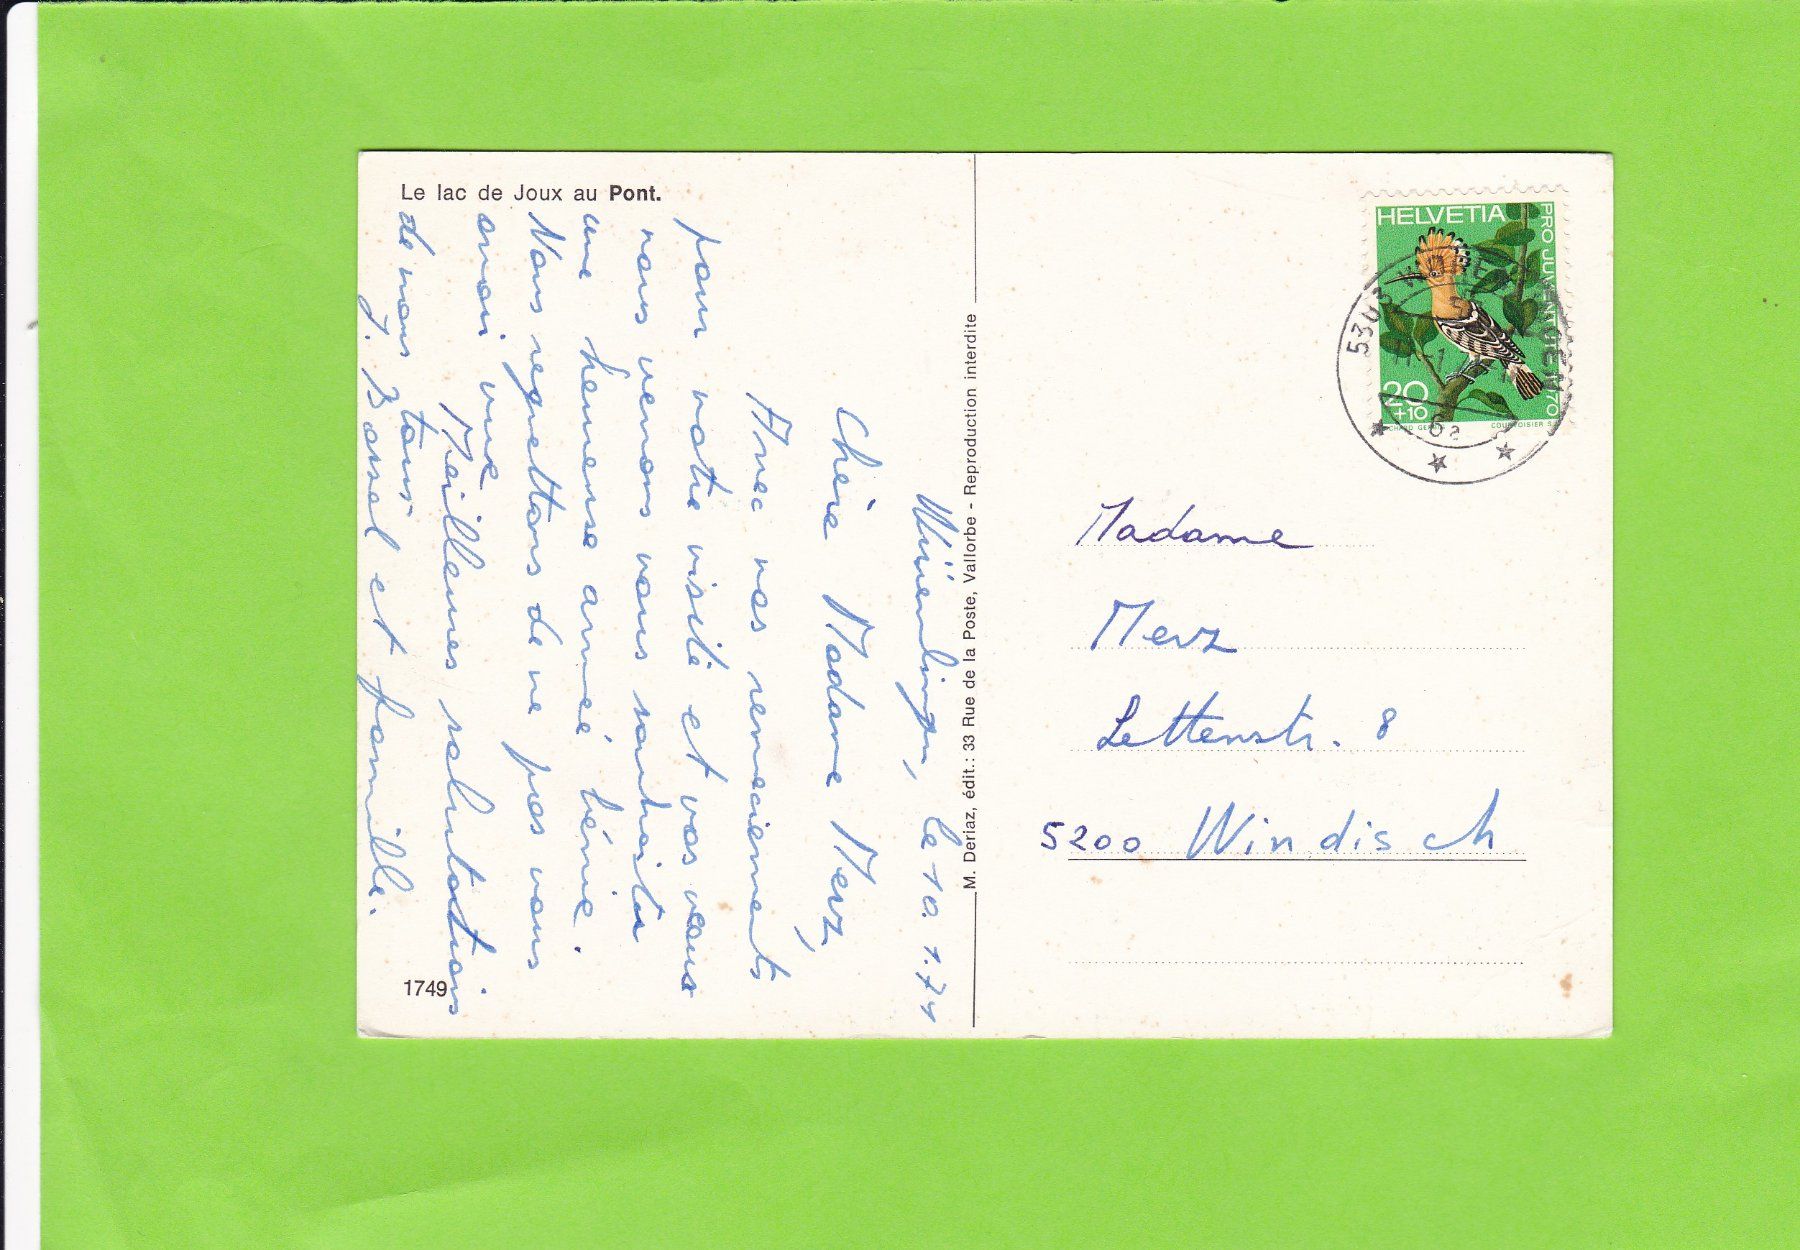 Le lac de Joux au Pont.
Würenlingen, le 10.1.71
Chère Madame Merz,
Avec nos remerciements
pour votre visite et vos vœux
nous venons vous souhaiter
une heureuse année bénie.
Nous regrettons de ne pas vous
avoir vue
Meilleures salutations
de nous tous
J. Bassel et famille.
1749
M. Deriaz, édit.: 33 Rue de la Poste, Vallorbe - Reproduction interdite
HELVETIA
PRO JUVENTUTE 1970
20
+10
COURVOISIER S.A.
5303
6a
Madame
Merz
Lettenstr. 8
5200 Windisch